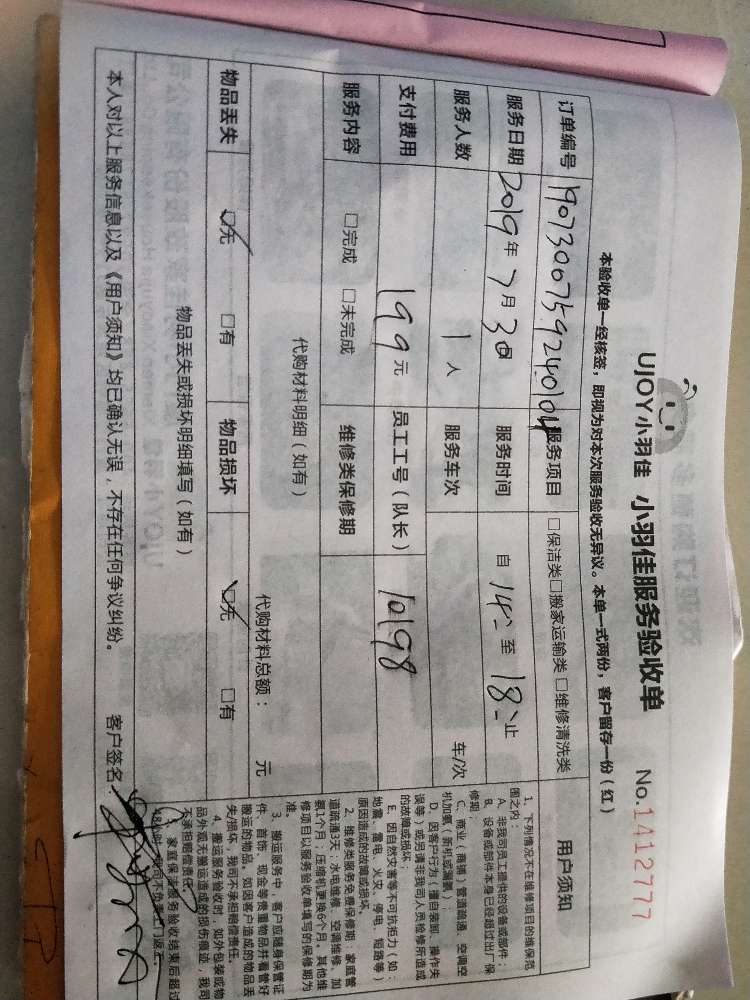 UJOY小羽佳 小羽佳服务验收单 No.1412777
本验收单一经核签，即视为对本次服务验收无异议。本单一式两份，客户留存一份（红）
订单编号 1907300759240104 服务项目 □保洁类□搬家运输类□维修清洗类
服务日期 2019年7月30日 服务时间 自 14: 至 18: 止
服务人数 1人 服务车次 车/次
支付费用 199元 员工工号（队长） 10198
服务内容 □完成 □未完成 维修类保修期
代购材料明细（如有） 代购材料总额： 元
物品丢失 □无 □有 物品损坏 □无 □有
物品丢失或损坏明细填写（如有）
本人对以上服务信息以及《用户须知》均已确认无误，不存在任何争议纠纷。 客户签名：
用户须知
1、下列情况不在维修项目的维保范
围之内：
A、非我司员工提供的设备或部件；
B、设备或部件本身已经超过出厂保
修期；
C、商业（商铺）管道疏通、空调空
机加氨（新机或漏氨）；
D、因客户行为（擅自装卸、操作失
误等）或另请非我司人员检修所造成
的故障或损坏；
E、因自然灾害等不可抗拒力（如：
地震、雷电、火灾、停电、短路等）
原因造成的故障或损坏。
2、维修类服务免费保修期：家庭管
道疏通3天；水电维修、空调维修、加
氨1个月；压缩机更换6个月；其他维
修项目以服务验收单填写的保修期为
准。
3、搬运服务中，客户应随身保管证
件、首饰、现金等贵重物品并看管好
搬运的物品。如因客户造成的物品丢
失/损坏，我司不承担赔偿责任。
4、搬运服务验收时，如外包装或物
品外观无搬运造成的损伤痕迹，我司
不承担赔偿责任。
5、家庭保洁服务验收结束后超过
48小时，我司不负责上门返工。